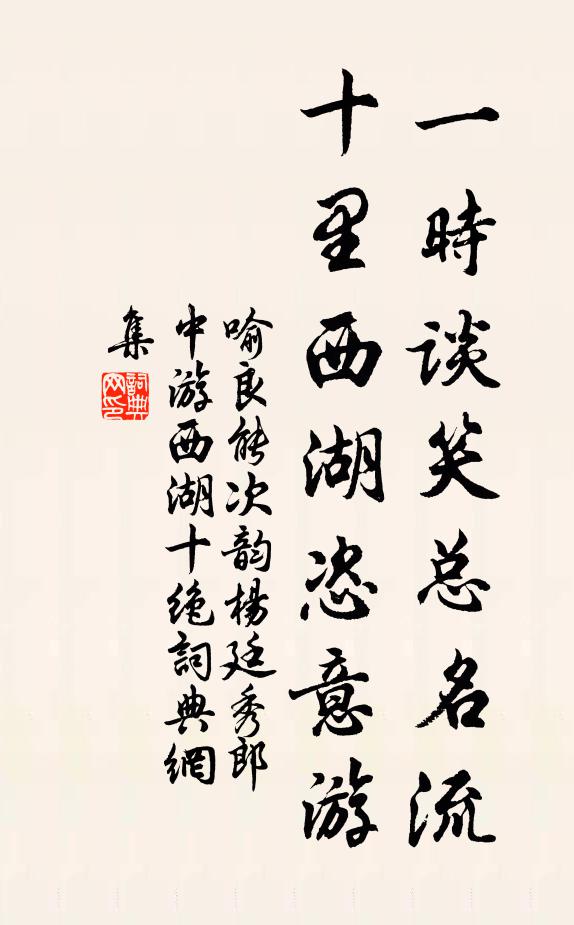 一時談笑总名流
十里西湖恣意游
喻良能次韵楊廷秀郎
中游西湖十绝詞典網
集
詞典网印